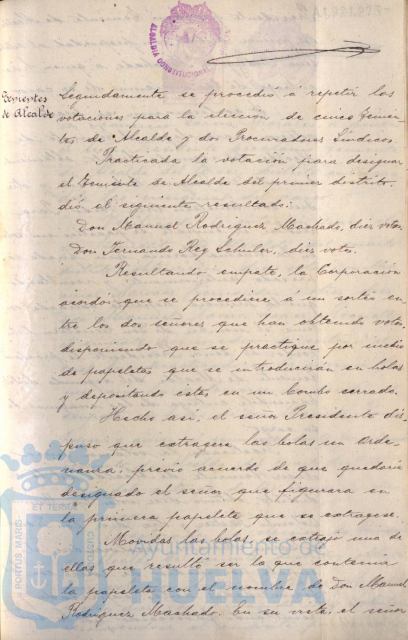 ALCALDIA CONSTITUCIONAL
Tenientes
de Alcalde
Seguidamente se procedió á repetir las
votaciones para la elección de cinco Tenien-
tes de Alcalde y dos Procuradores Síndicos.
Practicada la votación para designar
el Teniente de Alcalde del primer distrito,
dió el siguiente resultado:
Don Manuel Rodriguez Machado, diez votos.
Don Fernando Rey Schuler, diez votos.
Resultando empate, la Corporación
acordó que se procediese á un sorteo en-
tre los dos señores que han obtenido votos,
disponiendo que se practique por medio
de papeletas que se introducirán en bolas
y depositando éstas en un bombo cerrado.
Hecho así, el señor Presidente dis-
puso que extragera las bolas un Orde-
nanza, previo acuerdo de que quedaría
designado el señor que figurara en
la primera papeleta que se extragese.
Movidas las bolas, se extrajo una de
ellas que resultó ser la que contenía
la papeleta con el nombre de Don Manuel
Rodriguez Machado. En su vista, el señor
PORTUS MARIS
ET TERRAE
CUSTODIA
Ayuntamiento de
HUELVA